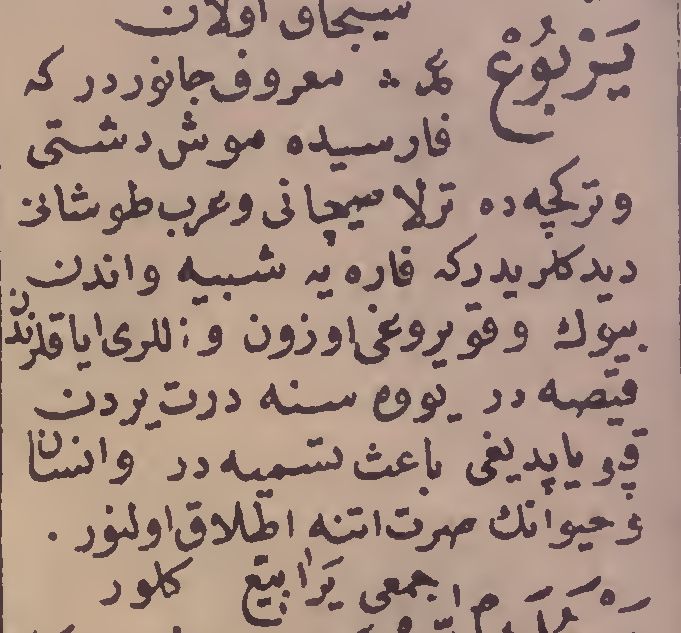 سیجاق اولان
یَرْبُوعْ معروف جانور در که
فارسیده موش دشتی
و ترکچه ده ترلا سیچانی و عرب طوشانی
دیدکلریدر که فاره یه شبیه و اندن
بیوك و قویروغی اوزون و اللری ایاقلرندن
قیصه در یووه سنه درت یردن
قپو یاپدیغی باعث تسمیه در و انسان
و حیوانك صرت اتنه اطلاق اولنور .
جمعی یَرَابِیعْ کلور